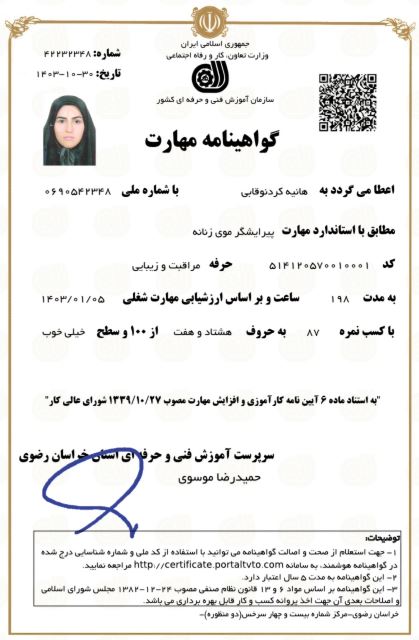 جمهوری اسلامی ایران
وزارت تعاون، کار و رفاه اجتماعی
سازمان آموزش فنی و حرفه ای کشور
شماره: ۴۲۲۳۲۳۴۸
تاریخ: ۳۰-۱۰-۱۴۰۳
گواهینامه مهارت
اعطا می گردد به هانیه کردنوقابی با شماره ملی ۰۶۹۰۵۴۲۳۴۸
مطابق با استاندارد مهارت پیرایشگر موی زنانه
کد ۵۱۴۱۲۰۵۷۰۰۱۰۰۰۱ حرفه مراقبت و زیبایی
به مدت ۱۹۸ ساعت و بر اساس ارزشیابی مهارت شغلی ۱۴۰۳/۰۱/۰۵
با کسب نمره ۸۷ به حروف هشتاد و هفت از ۱۰۰ و سطح خیلی خوب
"به استناد ماده ۶ آیین نامه کارآموزی و افزایش مهارت مصوب ۱۳۳۹/۱۰/۲۷ شورای عالی کار"
سرپرست آموزش فنی و حرفه ای استان خراسان رضوی
حمیدرضا موسوی
توضیحات:
۱- جهت استعلام از صحت و اصالت گواهینامه می توانید با استفاده از کد ملی و شماره شناسایی درج شده
در گواهینامه هوشمند، به سامانه http://certificate.portaltvto.com مراجعه نمایید.
۲- این گواهینامه به مدت ۵ سال اعتبار دارد.
۳- این گواهینامه بر اساس مواد ۶ و ۱۳ قانون نظام صنفی مصوب ۲۴-۱۲-۱۳۸۲ مجلس شورای اسلامی
و اصلاحات بعدی آن جهت اخذ پروانه کسب و کار قابل بهره برداری می باشد.
خراسان رضوی-مرکز شماره بیست و چهار سرخس(دو منظوره)-